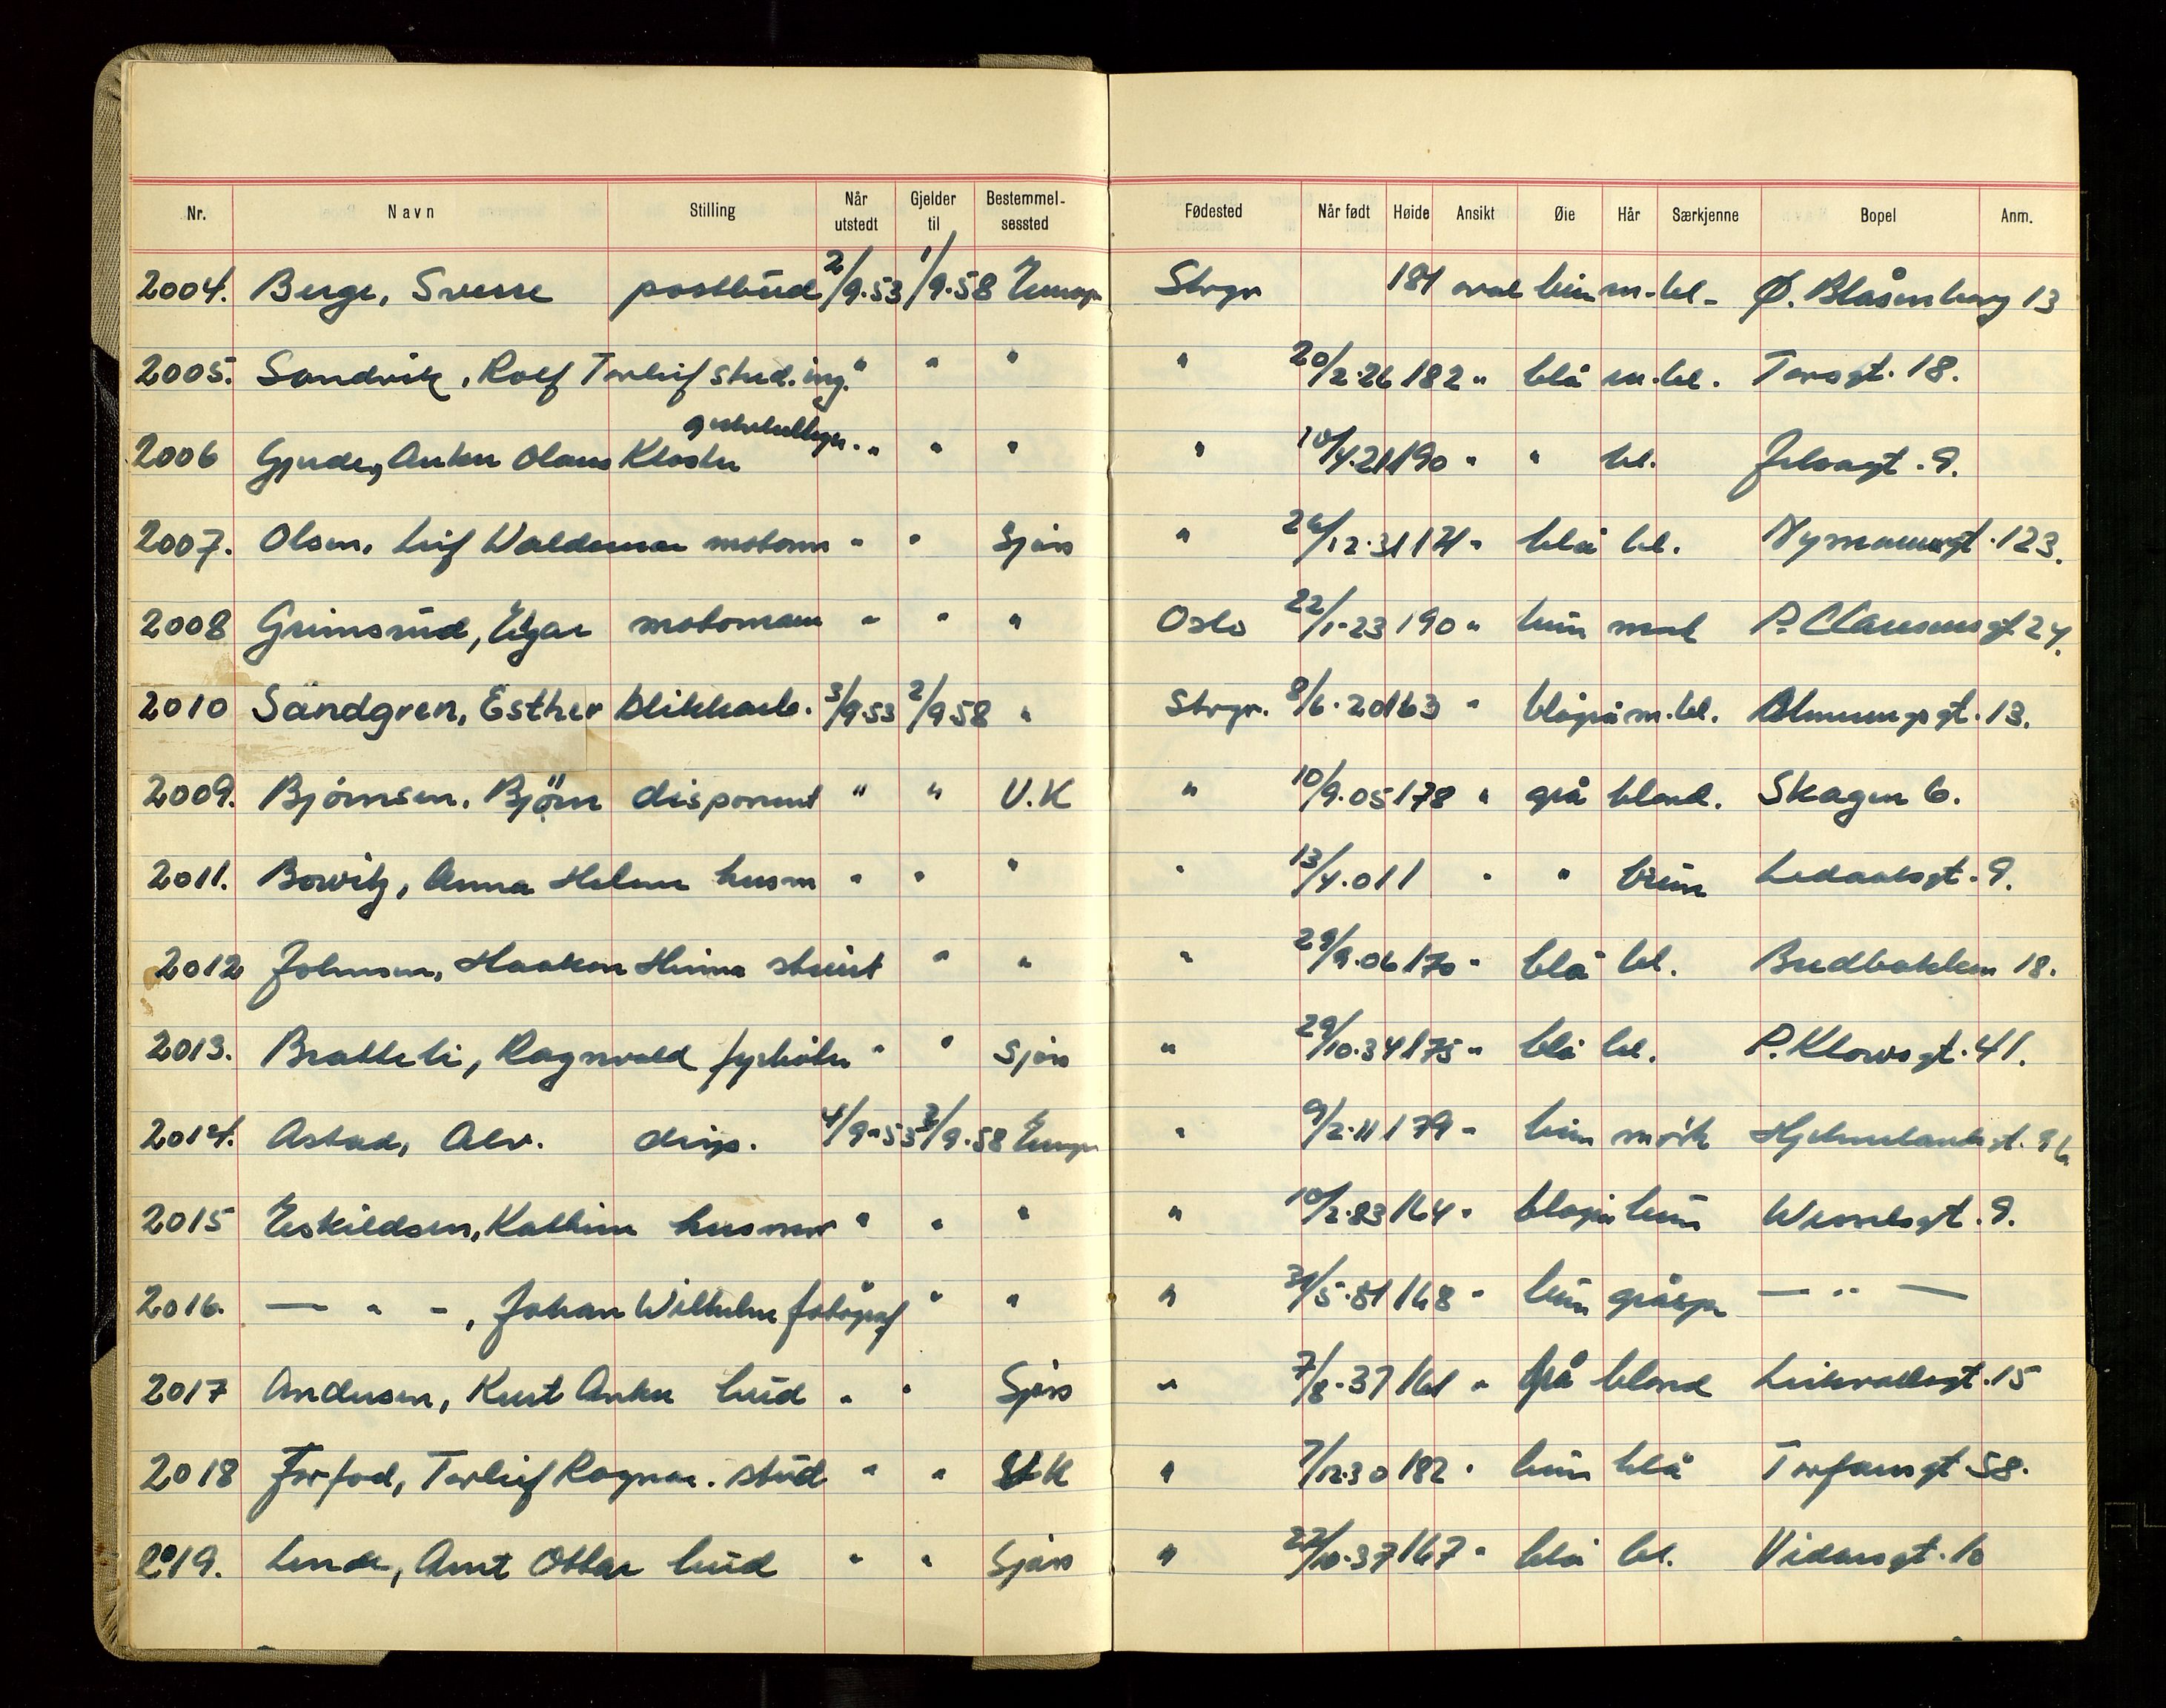 Nr. Navn Stilling Når utstedt Gjelder til Bestemmelsessted Fødested Når født Høide Ansikt Øie Hår Særkjenne Bopel Anm.
2004. Berge, Sverre postbud 2/9.53 1/9.58 Europa Stvgr 181 oval brun m.bl. Ø. Blåsenborg 13
2005. Sandvik, Rolf Torleif stud.ing. " " " " 20/2.26 182 " blå m.bl. Torsgt. 18.
2006 Anker Olaus Kloster " " " " 10/4.21 190 " " bl. Jelsagt. 9.
2007. Olsen, Leif Waldemar motorm " " Sjøss " 26/12.31 171 " blå bl. Nymannsgt. 123.
2008 Grimsrud, Egar motormann " " " Oslo 22/1.23 190 " brun mørk P. Clausensgt 24.
2010 Sandgren, Esther blikkarb. 3/9.53 2/9.58 " Stvgr. 8/6.20 163 " blågrå m.bl. gt. 13.
2009. Bjørnsen, Bjørn disponent " " U.K " 10/9.05 178 " grå blond. Skagen 6.
2011. Bowitz, Anna Helene husm " " " " 13/4.01 1 " " brun Ledaalsgt. 9.
2012 Johnsen, Haakon Hinna stuert " " " 29/9.06 170 " blå bl. Bredbakken 18.
2013. Bratteli, Ragnvald fyrbøter " " Sjøss " 29/10.34 175 " blå bl. P. Klowsgt. 41.
2014. Astad, Alv. disp. 4/9.53 3/9.58 Europa " 9/2.11 179 " brun mørk Hjelmelandsgt. 36
2015 Eskildsen, Kathrine husmor " " " " 10/2.83 164 " blågrå brun Wesselsgt. 9.
2016. — " -, Johan Wilhelm fotograf " " " 31/5.81 168 " brun gråspr — " —
2017 Andersen, Kurt Anker bud " " Sjøss " 7/8.37 161 " grå blond Leikvollsgt. 15
2018 Forfod, Torleif Ragnar. stud " " UK " 7/12.30 182 " brun blå Torfæusgt 58.
2019. Lende, Arnt Ottar bud " " Sjøss " 22/10.37 167 " blå bl. Vidarsgt. 10